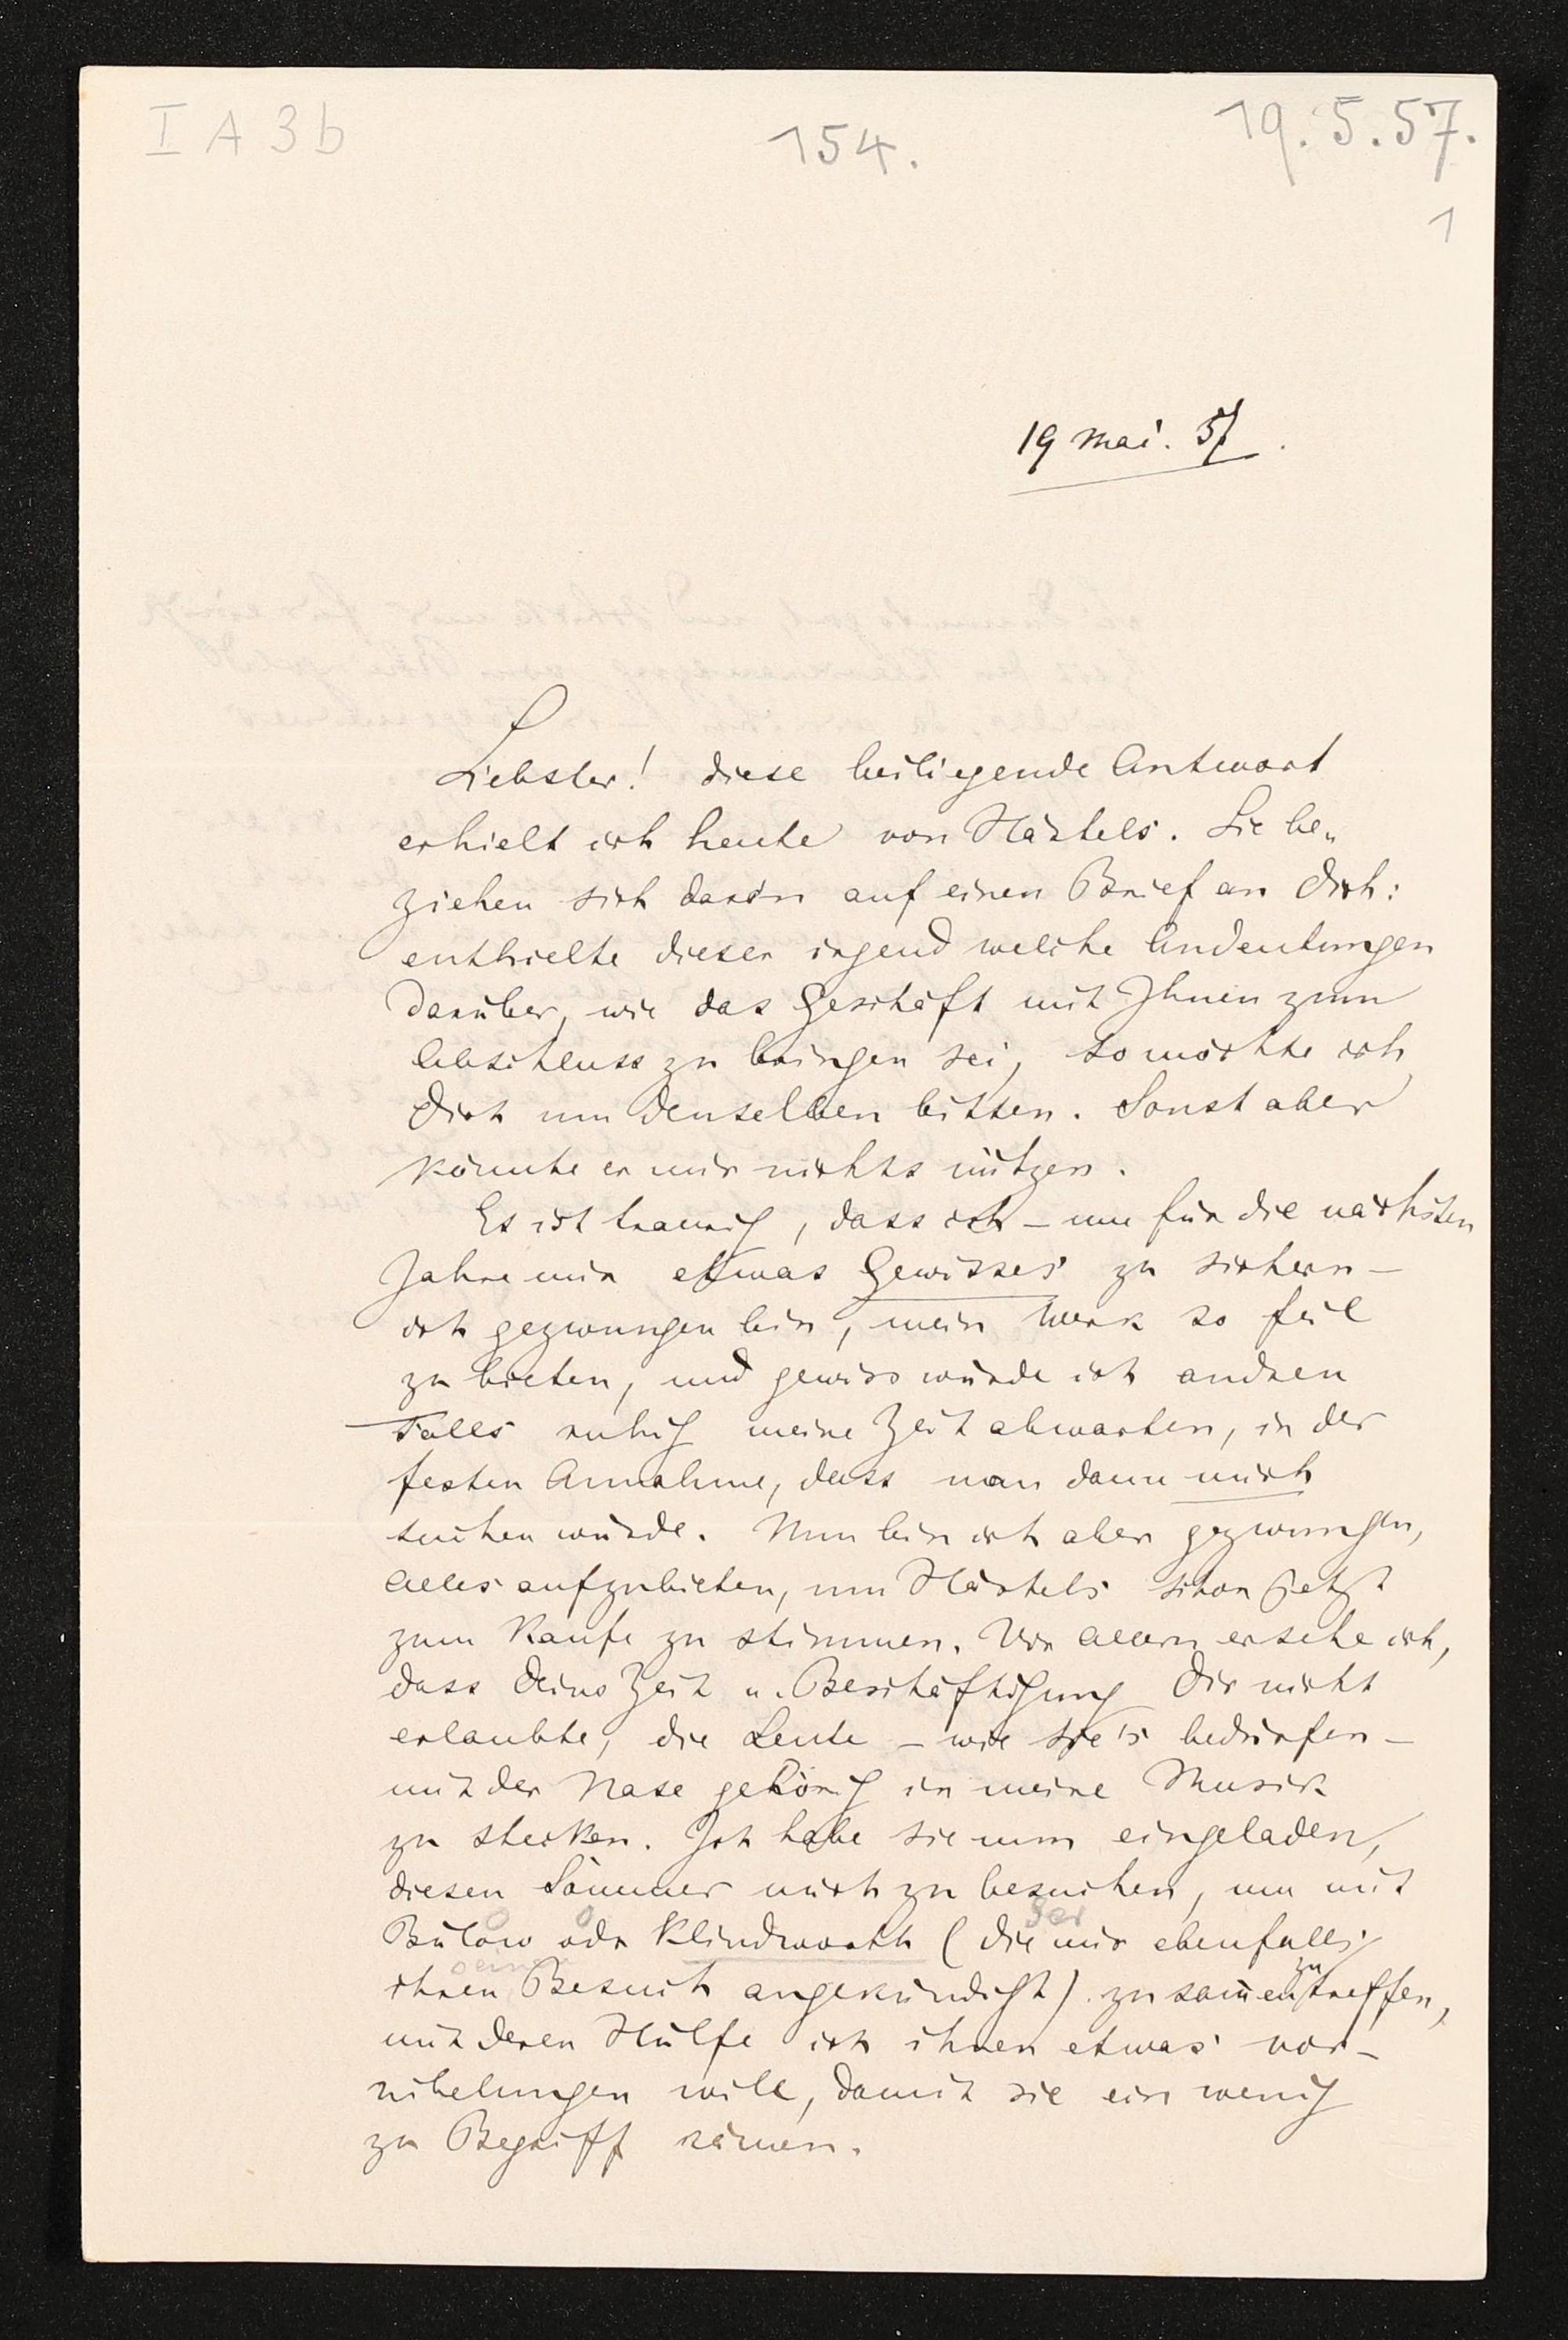 I A 3 b
154.
19.5.57.
1
19 Mai. 57.
Liebster! diese beiliegende Antwort
erhielt ich heute von Härtels. Sie be„
ziehen sich darin auf einen Brief an Dich:
enthielte dieser irgend welche Andeutungen
darüber, wie das Geschäft mit Ihnen zum
Abschluss zu bringen sei, so möchte ich
Dich um denselben bitten. Sonst aber
könnte er mir nichts nützen.
Es ist traurig, dass ich – um für die nächsten
Jahre mir etwas Gewisses zu sichern –
ich gezwungen bin, mein Werk so feil
zu bieten, und gewiss würde ich andren
Falles ruhig meine Zeit abwarten, in der
festen Annahme, dass man dann mich
suchen würde. Nun bin ich aber gezwungen,
Alles aufzubieten, um Härtels schon jetzt
zum Kaufe zu stimmen. Vor allem ersehe ich,
dass Deine Zeit u. Beschäftigung Dir nicht
erlaubte, die Leute – wie sie's bedürfen –
mit der Nase gehörig in meine Musik
zu stecken. Ich habe sie nun eingeladen,
diesen Sommer mich zu besuchen, um mit
der
Bülow oder Klindworth (die mir ebenfalls
seinen zu
ihren Besuch angekündigt) zusammentreffen,
mit deren Hülfe ich ihnen etwas vor-
nibelungen will, damit sie ein wenig
zu Begriff kämen.